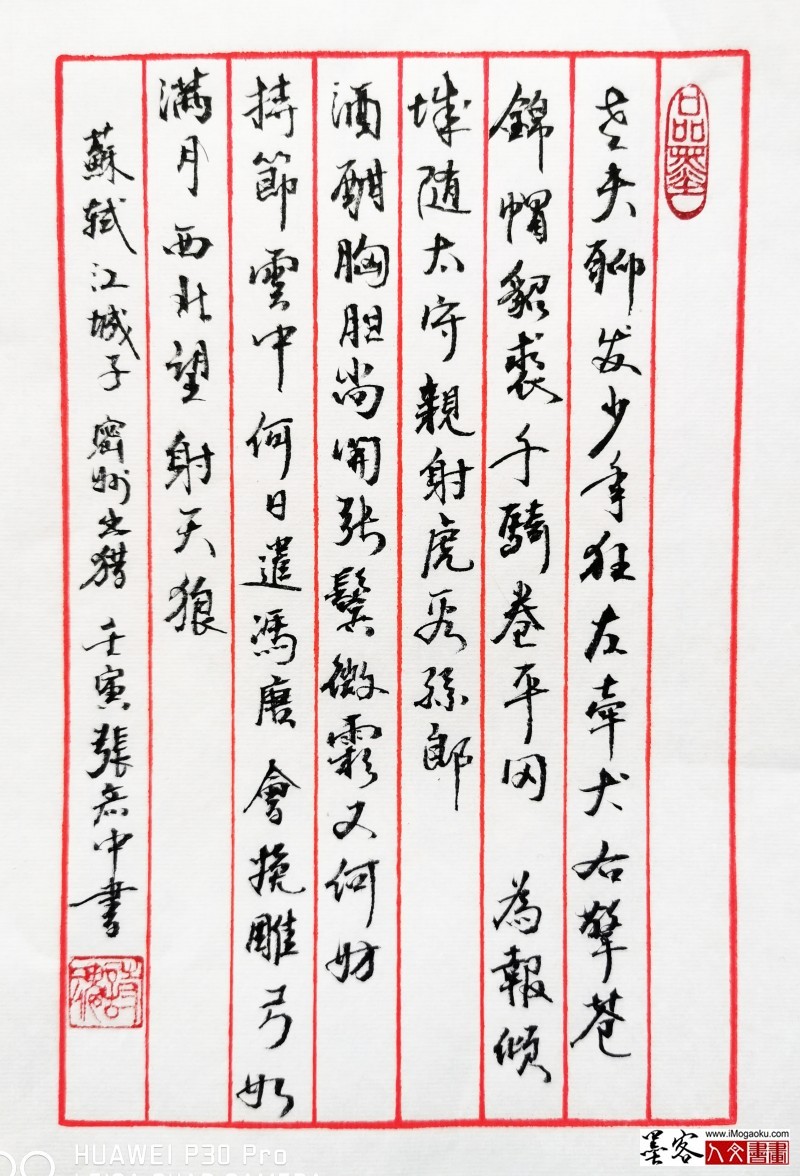 老夫聊发少年狂左牵犬右擎苍
錦帽貂裘千騎卷平冈 為報倾
城随太守親射虎看孫郎
酒酣胸胆尚開张鬓微霜又何妨
持節雲中何日遣馮唐 會挽雕弓如
满月西北望射天狼
蘇轼江城子 密州出猎 壬寅張志中書
HUAWEI P30 Pro
www.iMogaoku.com
墨客
人文書畫